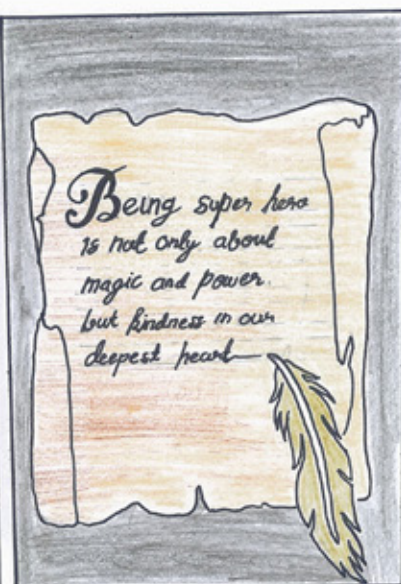 Being super hero
is not only about
magic and power.
but kindness in our
deepest heart